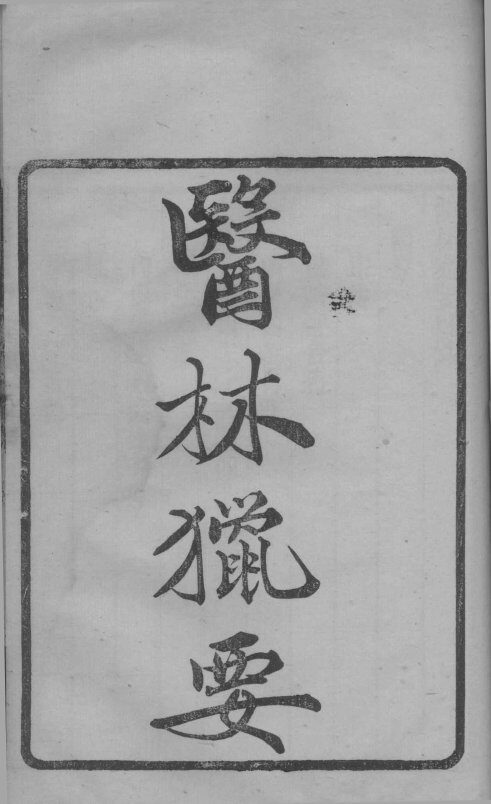 醫林獵要